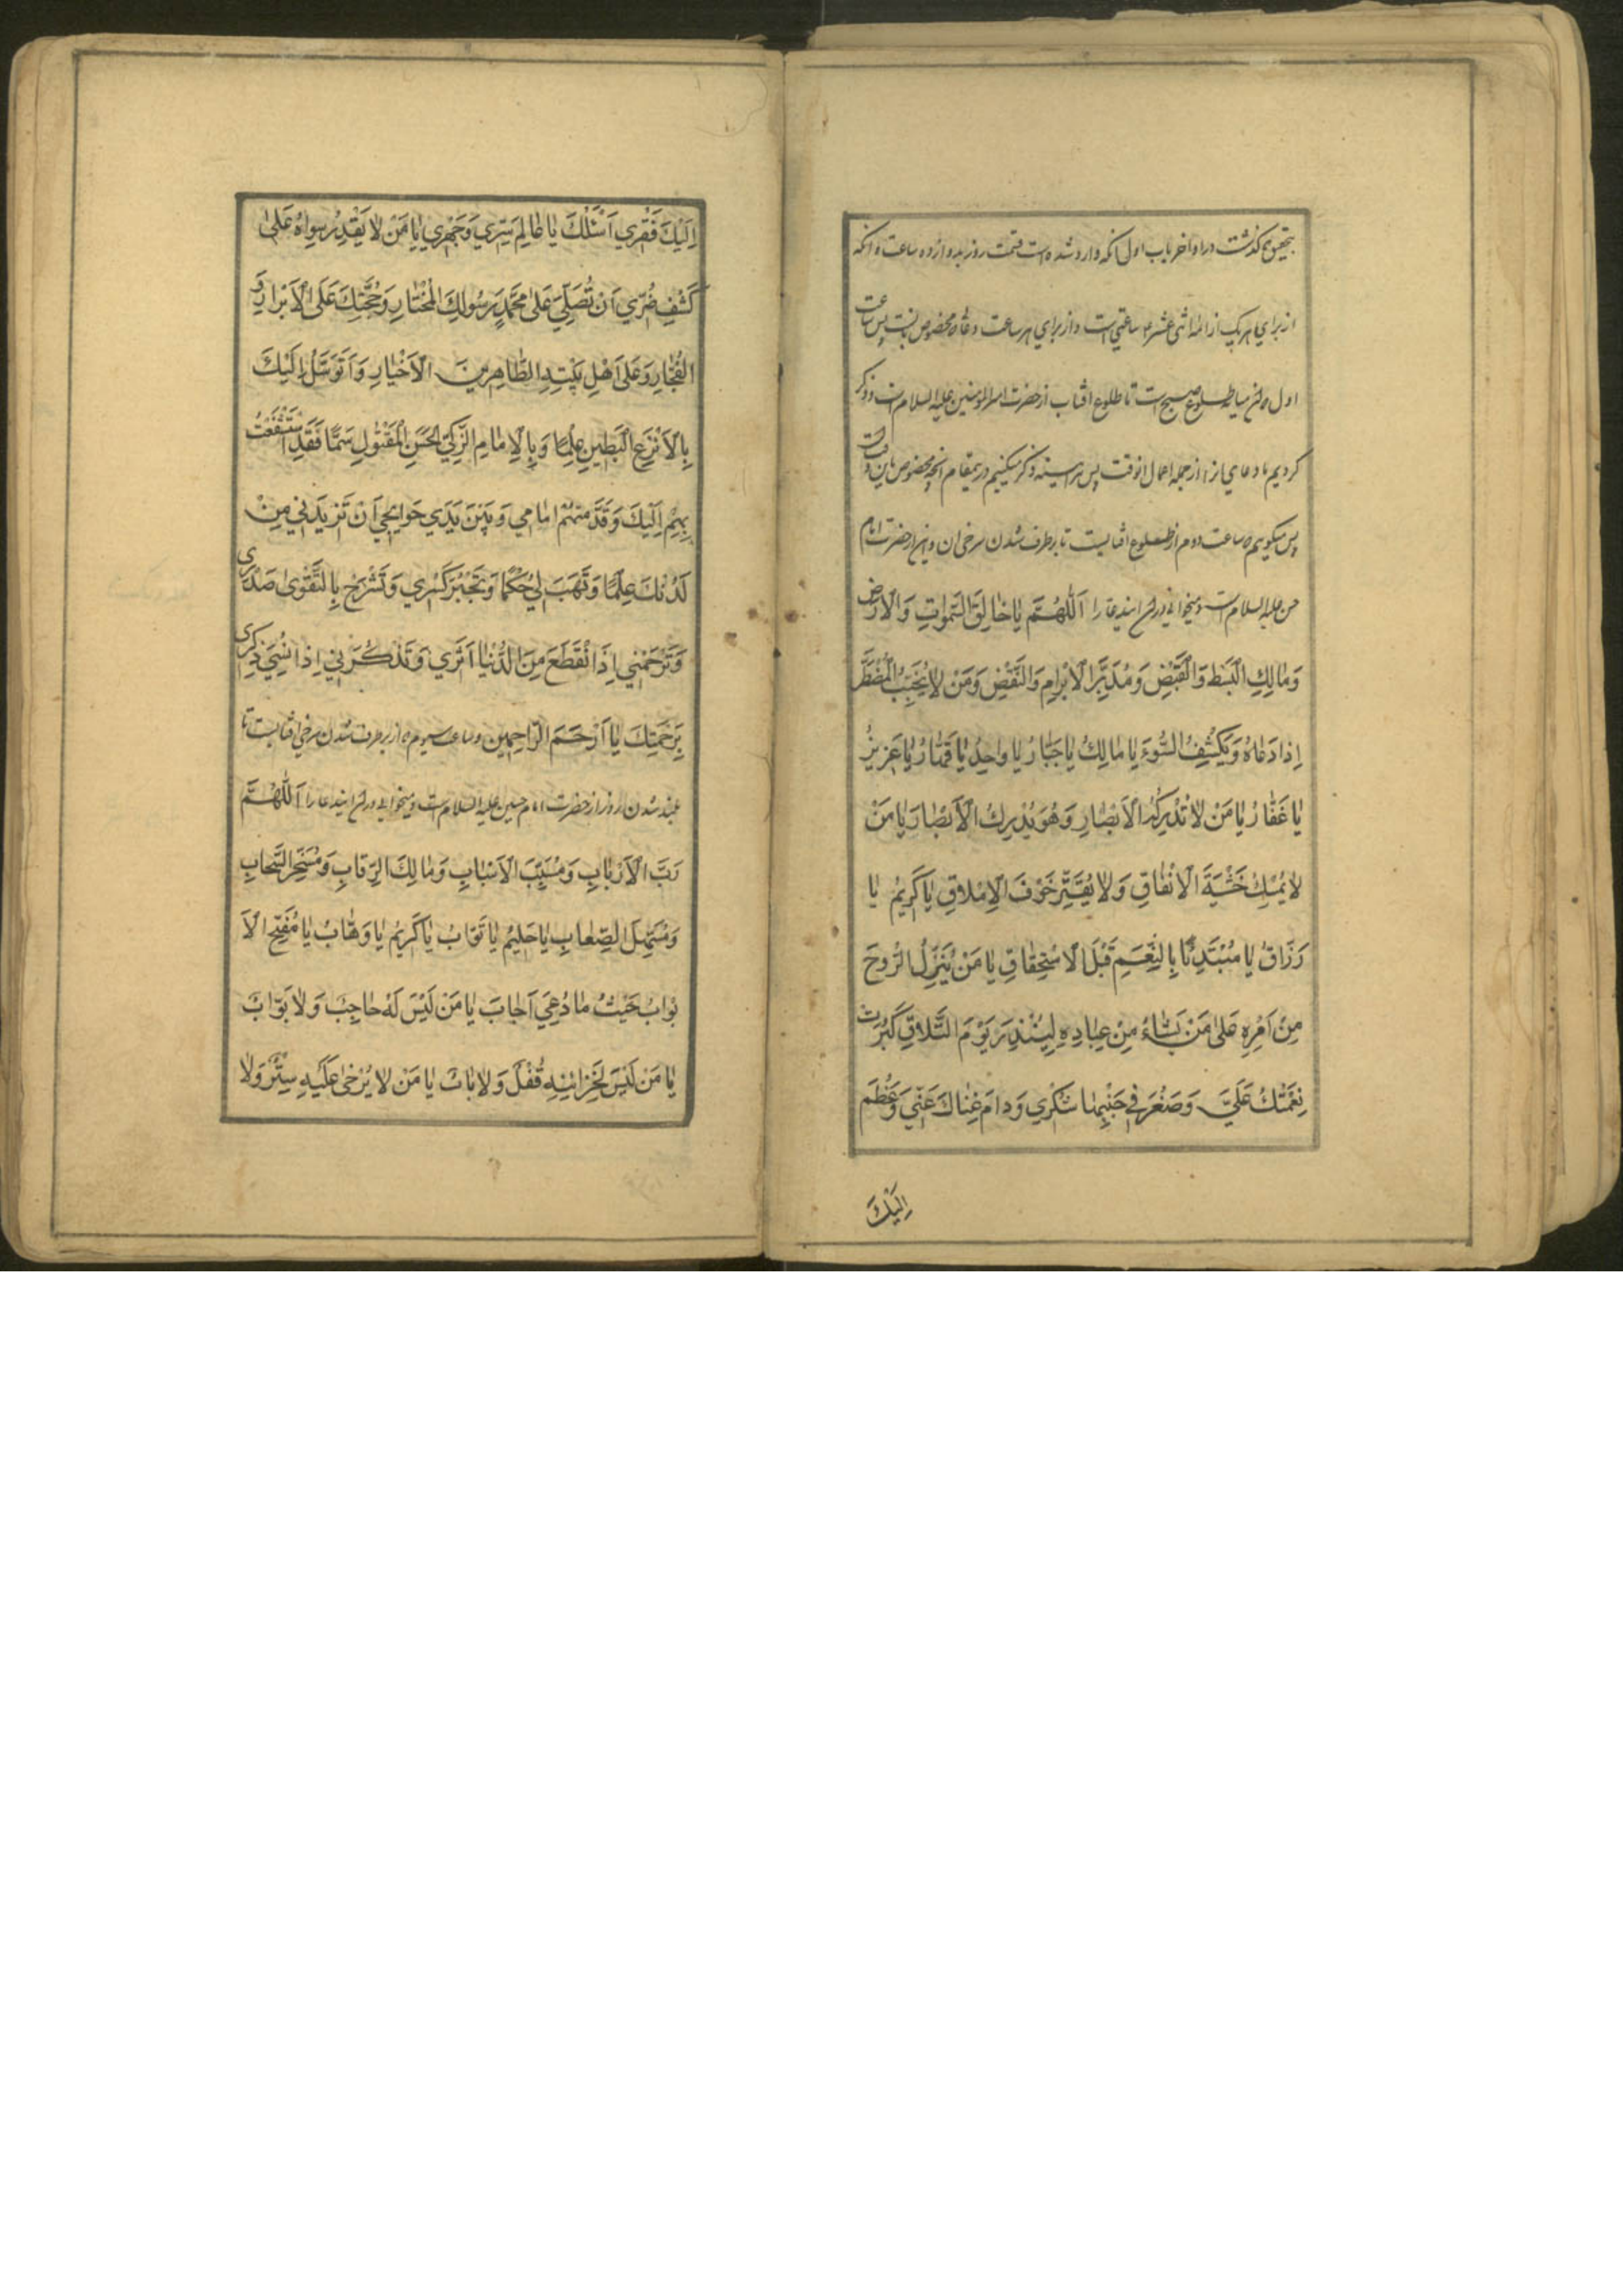 بتحقیق گذشت در اواخر باب اول آنکه وارد شده است قسمت روز بدوازده ساعت و آنکه
از برای هر یک از ائمه اثنی عشر ساعتی است و از برای هر ساعت دعاء مخصوص پس ساعت
اول میانه طلوع صبح است تا طلوع افتاب از حضرت امیر المؤمنین علیه السلام است و ذکر
کردیم ما دعای از از جمله اعمال انوقت پس ذکر میکنیم در اینمقام انچه مخصوص باین وقت
پس میگوییم ساعت دوم از طلوع افتابست تا برطرف شدن سرخی ان و از حضرت امام
حسن علیه السلام است و میخوانی در این ایندعا را اَللّٰهُمَّ یٰا خٰالِقَ السَّمٰوٰاتِ وَالْاَرْضِ
وَمٰالِكِ الْبَسْطِ وَالْقَبْضِ وَمُدَبِّرَ الْاَبْرٰامِ وَالنَّقْضِ وَمَنْ لٰا یُخَیِّبُ الْمُضْطَرَّ
اِذٰا دَعٰاهُ وَیَكْشِفُ السُّوءَ یٰا مٰالِكُ یٰا جَبّٰارُ یٰا وٰاحِدُ یٰا قَهّٰارُ یٰا عَزِیزُ
یٰا غَفّٰارُ یٰا مَنْ لٰا تُدْرِكُهُ الْاَبْصٰارِ وَهُوَ یُدْرِكُ الْاَبْصٰارَ یٰا مَنْ
لٰا یُمْسِكُ خَشْیَةَ الْاِنْفٰاقِ وَلٰا یُقَتِّرُ خَوْفَ الْاِمْلٰاقِ یٰا كَرِیمُ یٰا
رَزّٰاقُ یٰا مُبْتَدِئًا بِالنِّعَمِ قَبْلَ الْاسْتِحْقٰاقِ یٰا مَنْ یُنَزِّلُ الرُّوحَ
مِنْ اَمْرِهِ عَلٰی مَنْ یَشٰاءُ مِنْ عِبٰادِهِ لِیُنْذِرَ یَوْمَ التَّلٰاقِ كَبُرَتْ
نِعْمَتُكَ عَلَیَّ وَصَغُرَ فِی جَنْبِهٰا شُكْرِي وَدٰامَ غِنٰاكَ عَنِّي وَعَظُمَ
اِلَیْكَ
اِلَیْكَ فَقْرِي اَسْئَلُكَ یٰا عٰالِمَ سِرِّي وَجَهْرِي یٰا مَنْ لٰا یَقْدِرُ سِوٰاهُ عَلٰی
كَشْفِ ضُرِّي اَنْ تُصَلِّيَ عَلٰی مُحَمَّدٍ رَسُولِكَ الْمُخْتٰارِ وَحُجَّتِكَ عَلَی الْاَبْرٰارِ وَ
الْفُجّٰارِ وَعَلٰی اَهْلِ بَیْتِهِ الطّٰاهِرِینَ الْاَخْیٰارِ وَاَتَوَسَّلُ اِلَیْكَ
بِالْاَنْزَعِ الْبَطِینِ عِلْمًا وَبِالْاِمٰامِ الزَّكِيِّ الْحَسَنِ الْمَقْتُولِ سَمًّا فَقَدِ اسْتَشْفَعْتُ
بِهِمْ اِلَیْكَ وَقَدَّمْتُهُمْ اَمٰامِي وَبَیْنَ یَدَيْ حَوٰائِجِي اَنْ تَزِیدَنِي مِنْ
لَدُنْكَ عِلْمًا وَتَهَبَ لِي حُكْمًا وَتَجْبُرَ كَسْرِي وَتَشْرَحَ بِالتَّقْوٰی صَدْرِی
وَتَرْحَمْنِي اِذَا انْقَطَعَ مِنَ الدُّنْیٰا اَثَرِي وَتَذْكُرَنِي اِذٰا نُسِيَ ذِكْرِی
بِرَحْمَتِكَ یٰا اَرْحَمَ الرّٰاحِمِین و ساعت سیوم از برطرف شدن سرخی افتابست تا
بلند شدن روز از حضرت امام حسین علیه السلام است و میخوانی در این ایندعا را اَللّٰهُمَّ
رَبَّ الْاَرْبٰابِ وَمُسَبِّبَ الْاَسْبٰابِ وَمٰالِكَ الرِّقٰابِ وَمُسَخِّرَ السَّحٰابِ
وَمُسَهِّلَ الصِّعٰابِ یٰا حَلِیمُ یٰا تَوّٰابُ یٰا كَرِیمُ یٰا وَهّٰابُ یٰا مُفَتِّحَ الْاَ
بْوٰابِ حَیْثُ مٰا دُعِيَ اَجٰابَ یٰا مَنْ لَیْسَ لَهُ حٰاجِبٌ وَلٰا بَوّٰابٌ
یٰا مَنْ لَیْسَ لِخَزٰائِنِهِ قُفْلٌ وَلٰا بٰابٌ یٰا مَنْ لٰا یُرْخٰی عَلَیْهِ سِتْرٌ وَلٰا